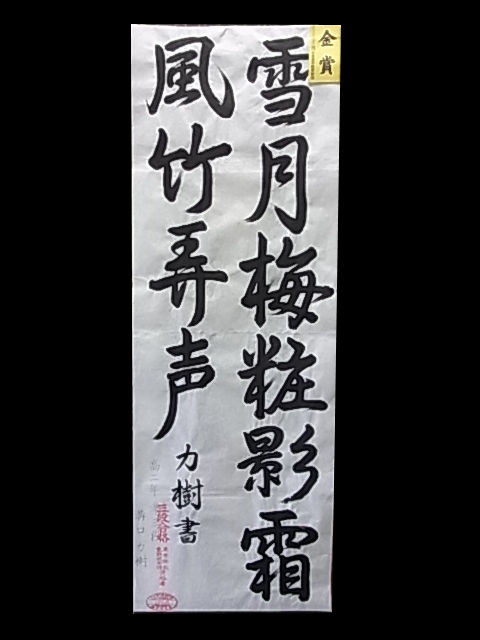 金賞
雪月梅粧影霜
風竹弄声
力樹書
三段合格
高二年
井口力樹